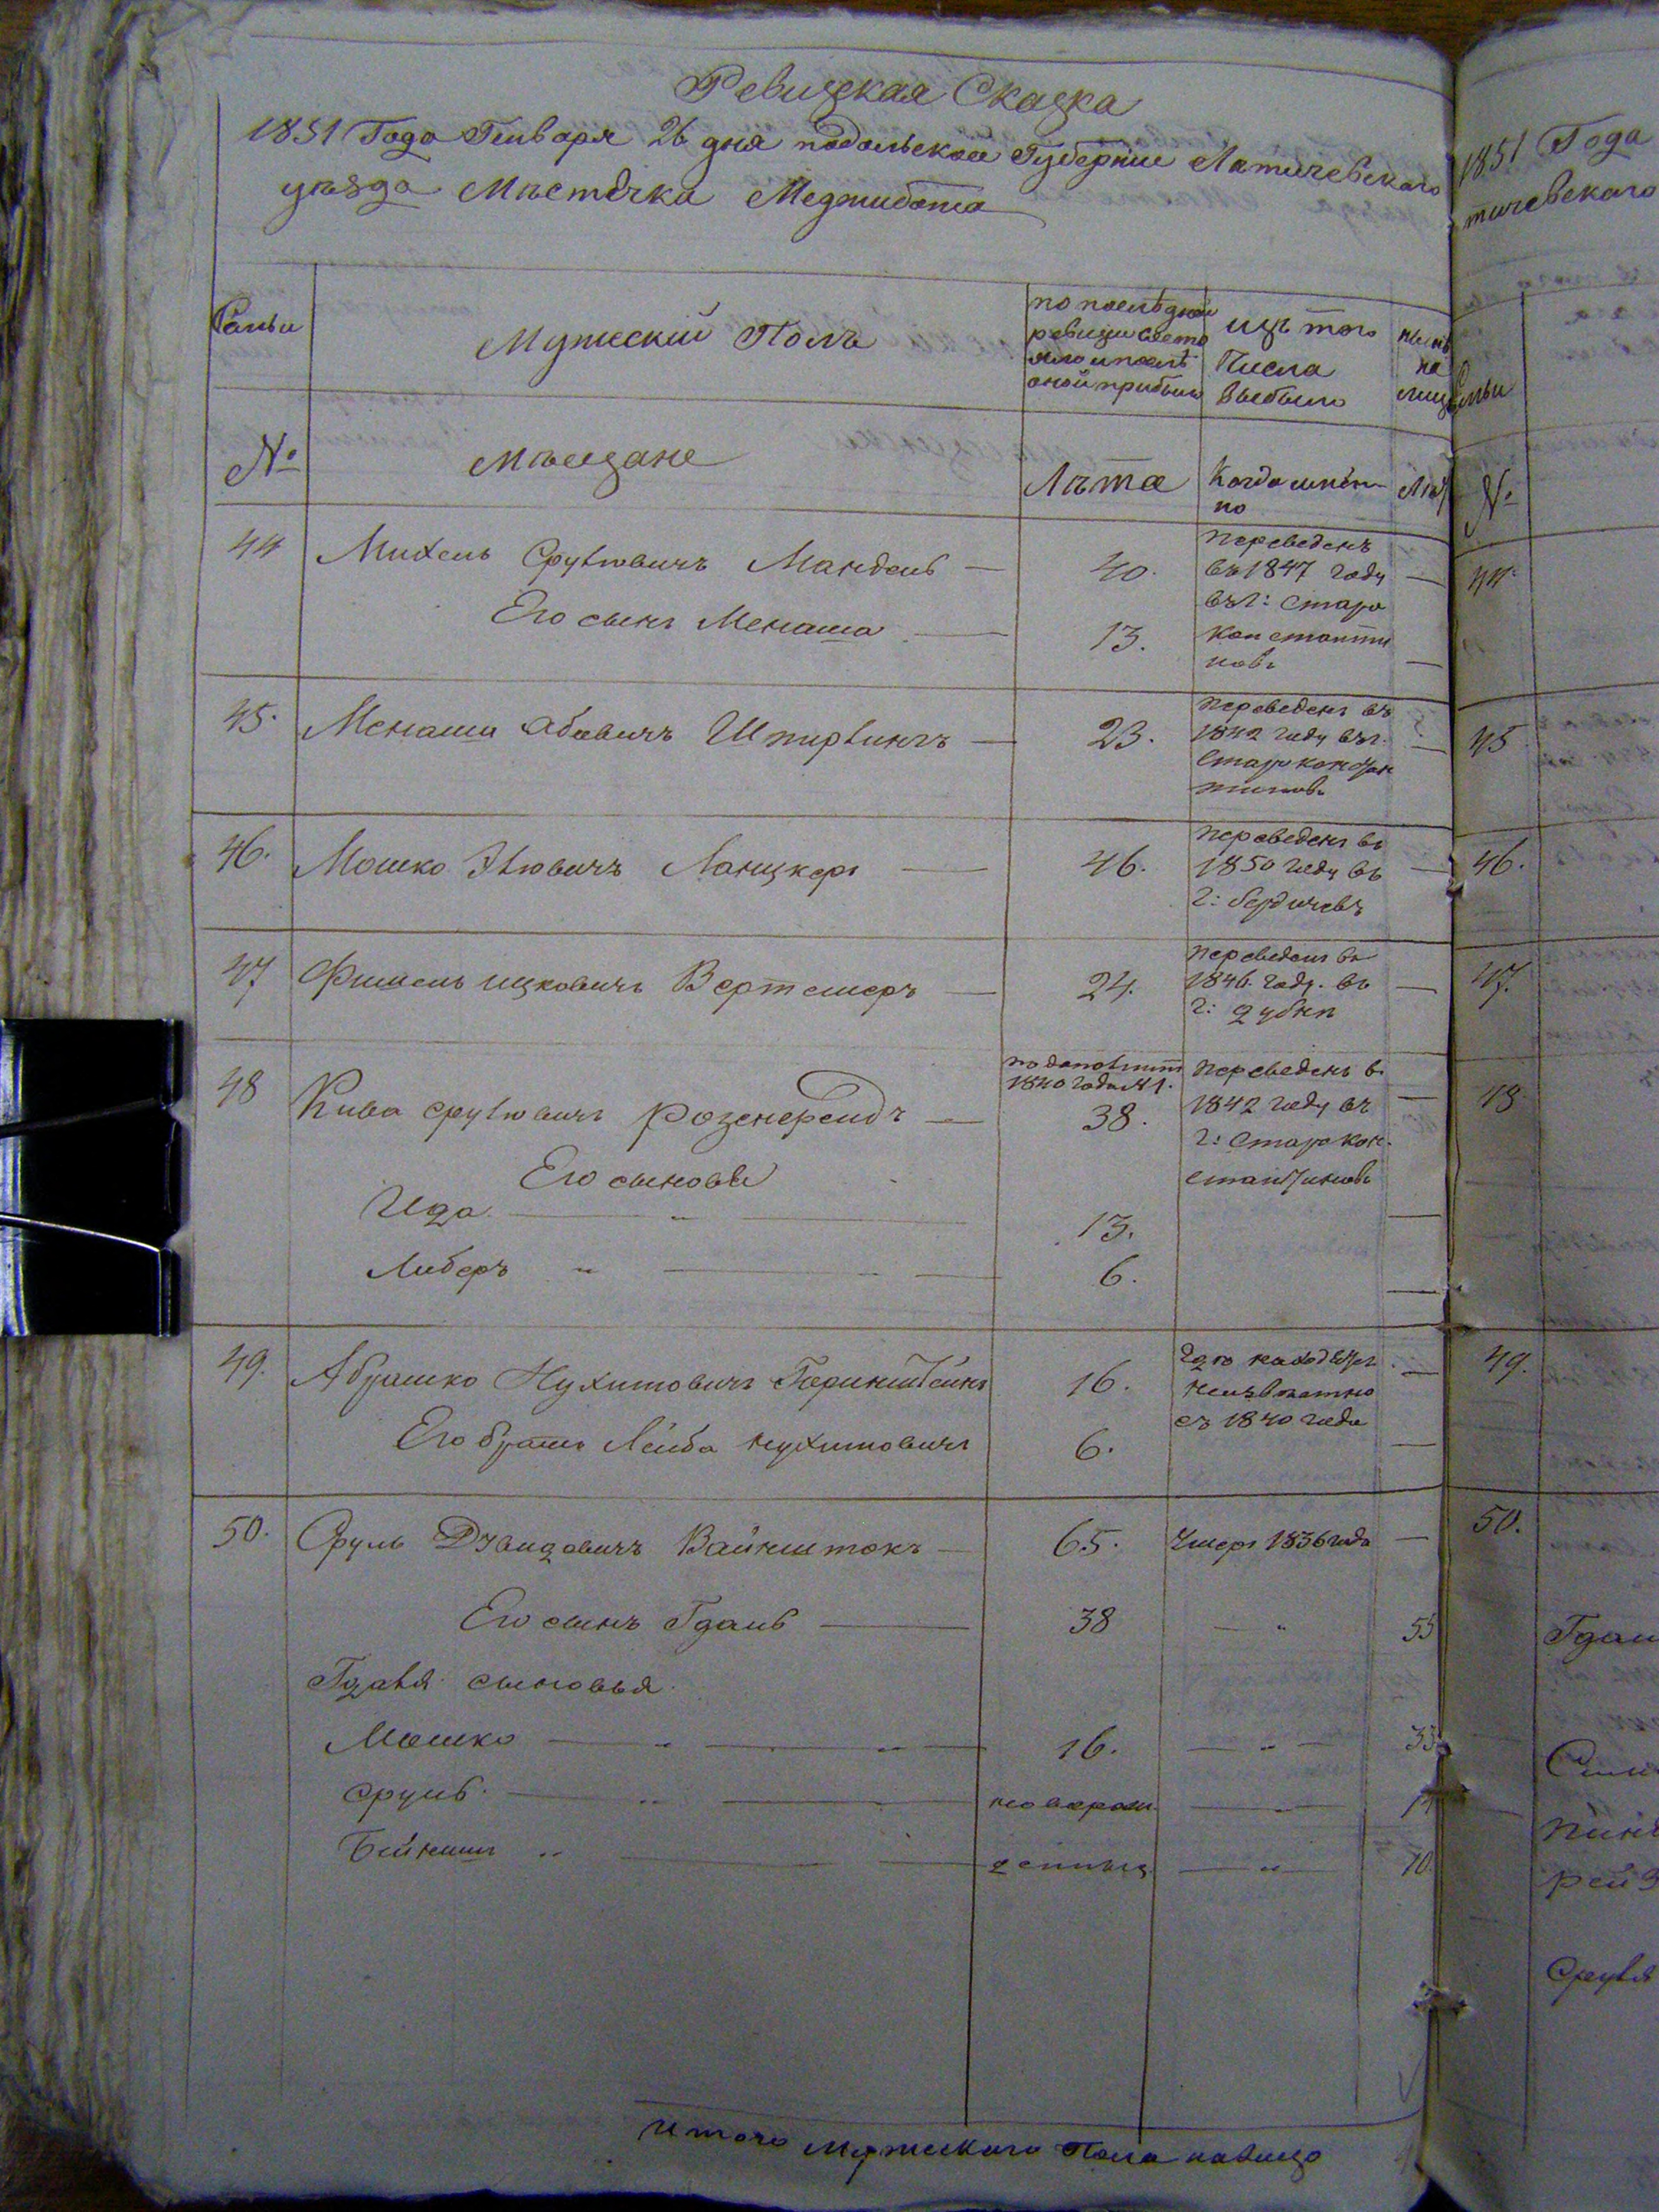 Ревизская Сказка
1851 Года Генваря 26 дня подольской Губернии Латичевского
уѣзда Мѣстечка Меджибожа
Семьи
Мужескій Полъ
по послѣдней
ревизіи состо
яло и послѣ
оной прибыло
изъ того
числа
выбыло
нынѣ
на
лицо
№
мѣщане
Лѣта
Когда имен-
но
Лѣт
44
Михель Срулювичъ Мандель — 40.
переведенъ
въ 1847 году
въ г: Старо
константи
новъ
Его сынъ Менаша — 13.
45.
Менаши Абовичъ Шпирлингъ — 23.
переведенъ въ
1842 году въ г.
Староконстан
тиновъ
46.
Мошко Элювичъ Ланцкеръ — 46.
переведенъ въ
1850 году въ
г: бердичевъ
47
Фишель ицковичъ Вертемеръ — 24.
переведенъ въ
1846. году. въ
г: дубнѣ
48
Кива срулювичъ розенфельдъ — 38.
1840 года №1.
переведенъ в.
1842 году въ
г: Старокон.
стантиновъ
Его сыновья
Ида — " — 13.
Либеръ " — 6.
49.
Абрашко Нухимовичъ Горинштейнъ 16.
гдѣ находится
неизвѣстно
съ 1840 года
Его братъ Лейба нухимовичъ 6.
50.
Сруль Давидовичъ Вайнштокъ — 65. Умеръ 1836 года —
Его сынъ Гдаль — 38 — " 55
Гдаля сыновья
Мошко — " — " — 16. — " — 33
сруль. — " — новорож — " — 14
Бейнишъ " — — денныя — " — 10.
Итого Мужеского Пола налицо
1851 Года
тичевского
Семьи
№
44
45
46.
47.
48
49.
50.
Гдал